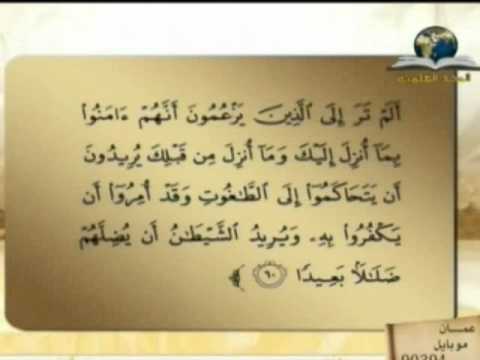 المجد العلمية
أَلَمْ تَرَ إِلَى ٱلَّذِينَ يَزْعُمُونَ أَنَّهُمْ ءَامَنُوا۟
بِمَآ أُنزِلَ إِلَيْكَ وَمَآ أُنزِلَ مِن قَبْلِكَ يُرِيدُونَ
أَن يَتَحَاكَمُوٓا۟ إِلَى ٱلطَّـٰغُوتِ وَقَدْ أُمِرُوٓا۟ أَن
يَكْفُرُوا۟ بِهِۦ وَيُرِيدُ ٱلشَّيْطَـٰنُ أَن يُضِلَّهُمْ
ضَلَـٰلَۢا بَعِيدًا ٦٠
عمان
موبايل